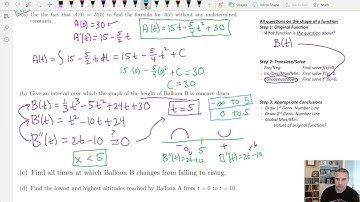 (b) Use the fact that A(0) = B(0) to find the formula for A(t) without any undetermined
constants.
A(0) = 30
A'(t) = 15 - 5/2 t
A(t) = 15t - 5/4 t² + 30
A(t) = ∫ 15 - 5/2 t dt = 15t - 5/4 t² + C
15(0) - 5/4(0)² + C = 30
C = 30
(b) Give an interval over which the graph of the height of Balloon B is concave down.
B(t) = 1/3 t³ - 5t² + 24t + 30
B'(t) = t² - 10t + 24
B''(t) = 2t - 10 ?= 0
t = 5
x < 5
-∞ to 5
0 to 5
- 0 5 + 6
B''(t) = 2t - 10
B''(t) = 2t - 10
(c) Find all times at which Balloon B changes from falling to rising.
(d) Find the lowest and highest altitudes reached by Balloon A from t = 0 to t = 10.
All questions on the shape of a function
Step 1: Original Function
- What function is the question about?
B(t)
Step 2: Translate/Solve
Step 3: Appropriate Conclusions
- Draw 1st Deriv. Number Line
- Draw 2nd Deriv. Number Line
- Global Max/Min:
Values of original function?